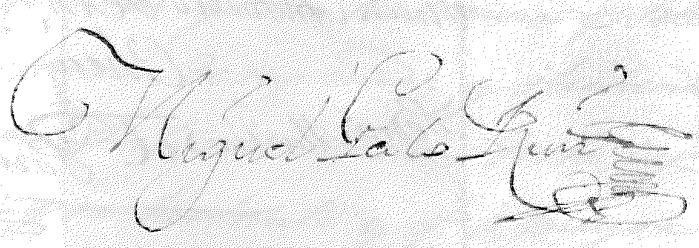 Miguel Calo Ruiz